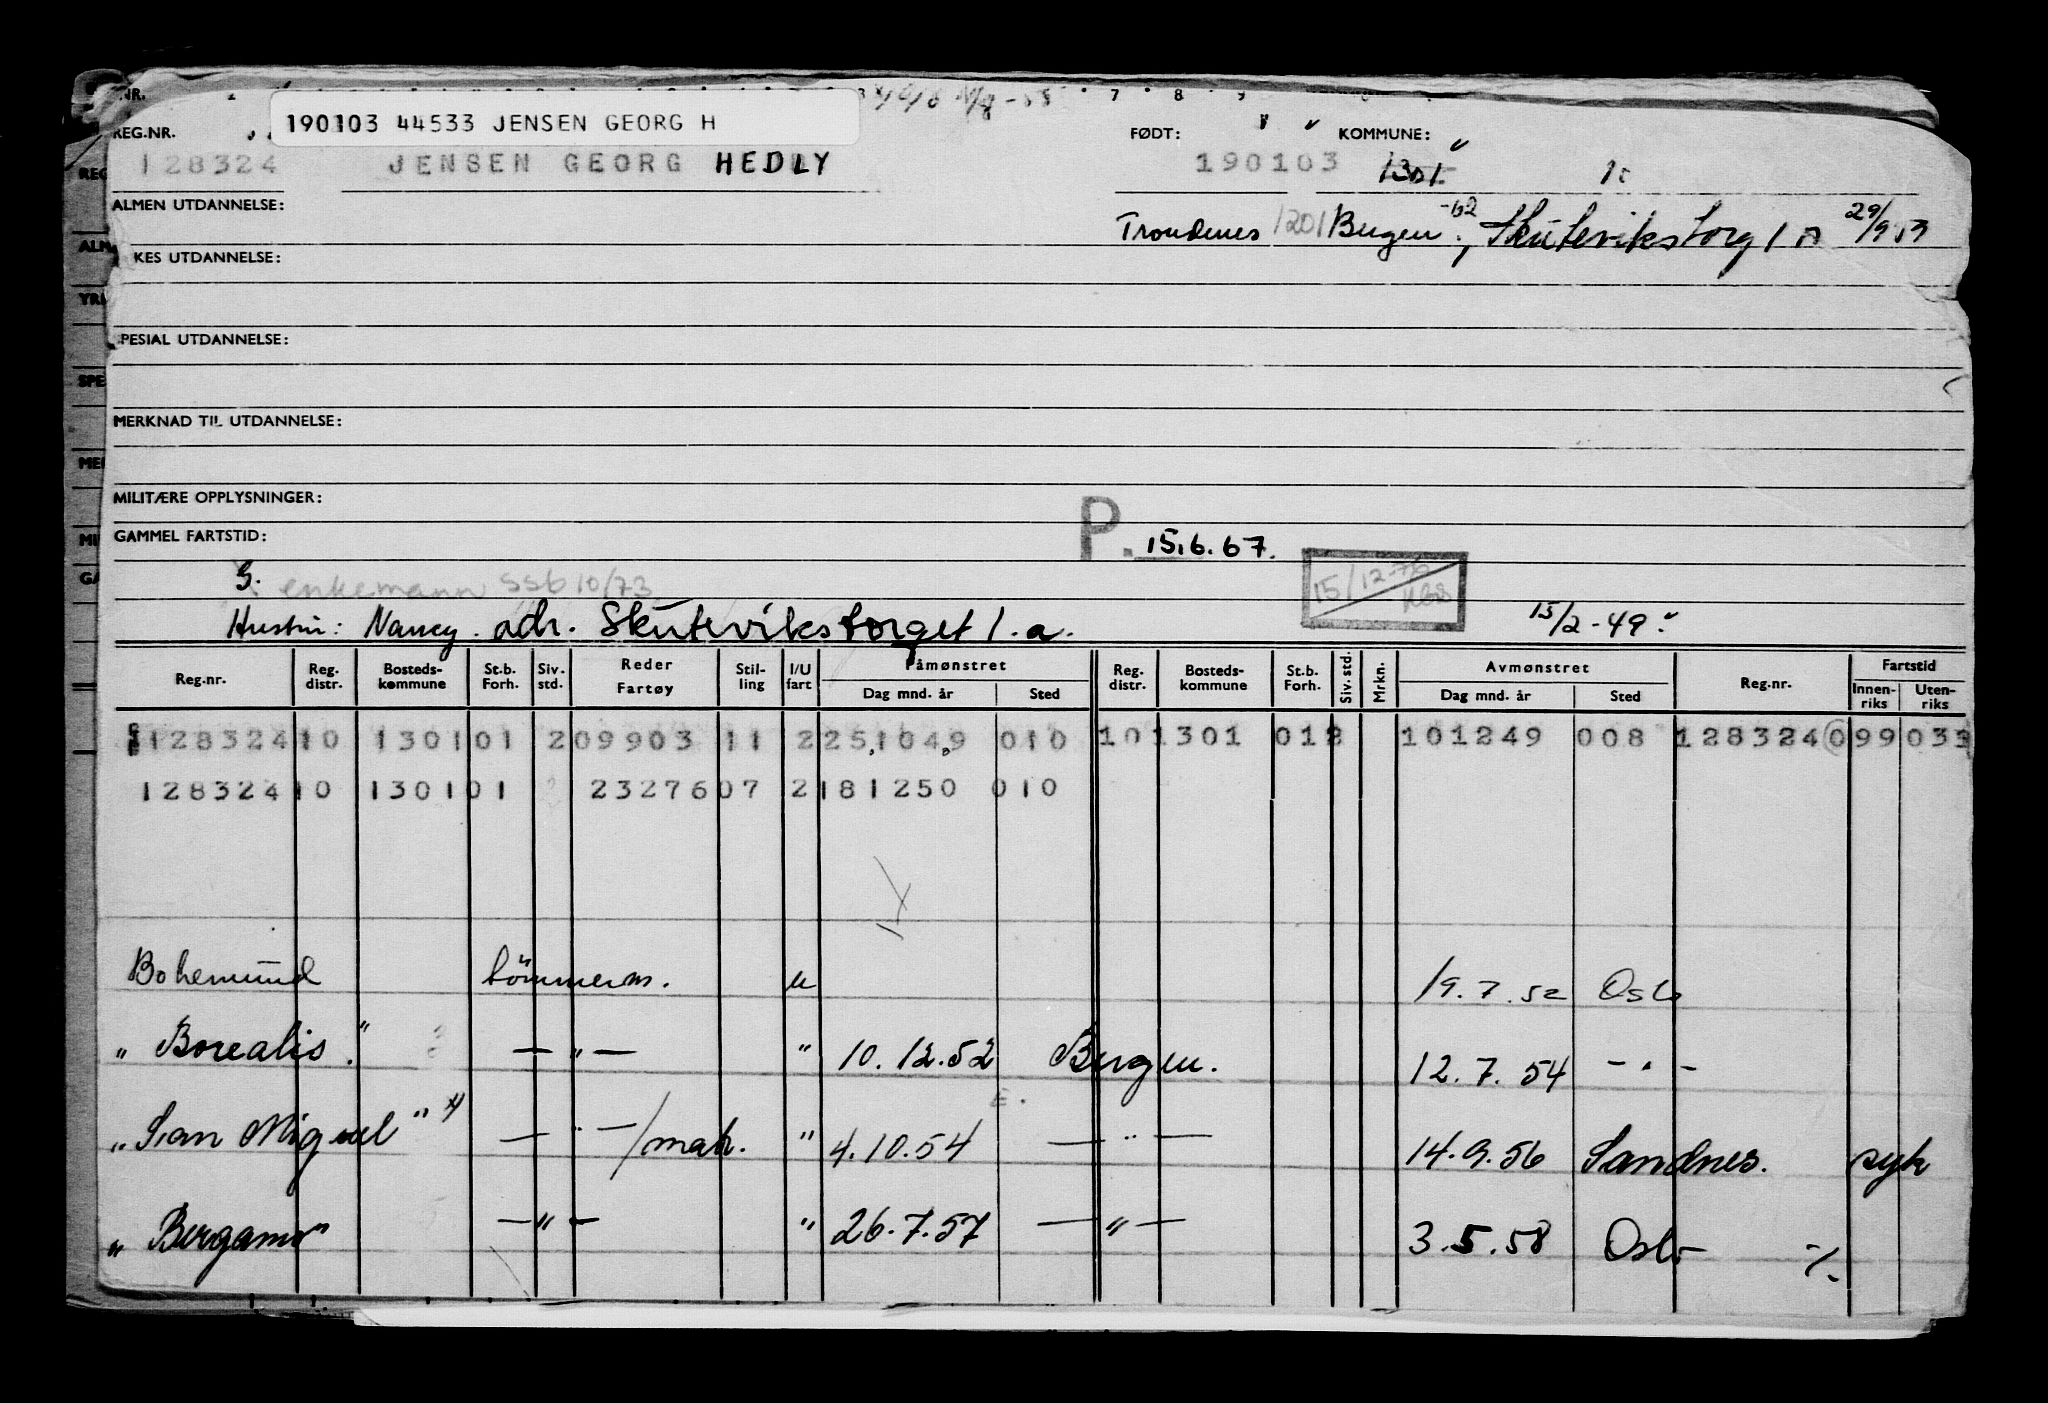 NR. 7 8 9
190103 44533 JENSEN GEORG H
REG.NR. FØDT: KOMMUNE:
128324 JENSEN GEORG HEDLY 190103 1301
ALMEN UTDANNELSE: Trondenes 1201 Bergen -62, Skuteviks torg 1 a 29/9 59
KES UTDANNELSE:
SPESIAL UTDANNELSE:
MERKNAD TIL UTDANNELSE:
MILITÆRE OPPLYSNINGER:
GAMMEL FARTSTID: P. 15.6.67.
G. enkemann SSB 10/73 15/12-
Hustru: Nancy. adr. Skuteviks torget 1.a. 15/2-49.
Reg.nr. Reg. distr. Bosteds-kommune St.b. Forh. Siv. std. Reder Fartøy Stil-ling I/U fart Påmønstret Dag mnd. år Sted Reg. distr. Bosteds-kommune St.b. Forh. Siv. std. Mrkn. Avmønstret Dag mnd. år Sted Reg.nr. Fartstid Innen-riks Uten-riks
128324 10 1301 01 2 09903 11 2 251049 010 10 1301 012 101249 008 128324 099 033
128324 10 1301 01 23276 07 2 181250 010
Bohemund tömmerm. u 19.7.52 Oslo
"Borealis." — " — " 10.12.52 Bergen. 12.7.54 - " -
"San Miguel" x) — " — /mah. " 4.10.54 — " — 14.9.56 Sandnes. syk
"Bergamo" — " — " 26.7.57 — " — 3.5.58 Oslo -/.